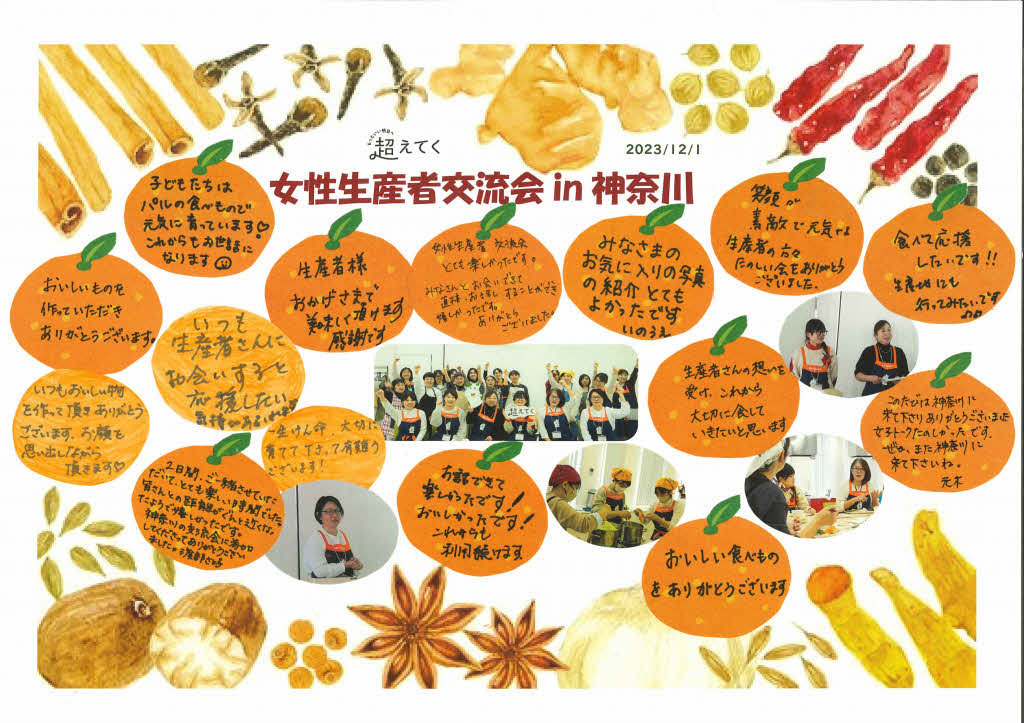 超えてく
2023/12/1
女性生産者交流会 in 神奈川
子どもたちは
パルの食べもので
元気に育っています♡
これからもお世話に
なります
おいしいものを
作っていただき
ありがとうございます。
生産者様
おかげさまで
美味しく頂けます
感謝です
女性生産者 交流会
とても楽しかったです。
みなさんとお会いできて
直接お話しすることができ
嬉しかったです。
ありがとう
ございました。
みなさまの
お気に入りの写真
の紹介とても
よかったです
いのうえ
笑顔が
素敵で元気な
生産者の方々
たのしい会をありがとう
ございました。
食べて応援
したいです!!
生産地にも
行ってみたいです♪♪
いつも
生産者さんに
お会いすると
応援したい
気持があふれます
いつもおいしい物
を作って頂きありがとう
ございます。お顔を
思い出しながら
頂きます♡
一生けん命、大切に
育てて下さって有難う
ございます!
生産者さんの想いを
受け、これから
大切に食して
いきたいと思います
このたびは神奈川に
来て下さりありがとうございました
女子トークたのしかったです。
ぜひ、また神奈川に
来て下さいね。
元木
2日間、ご一緒させていた
だいて、とても楽しい時間でした
皆さんとの距離がぐんと近くな
ったようで嬉しかったです。
神奈川の交流会に参加
してくださってありがとうござい
ました。
お話できて
楽しかったです!
おいしかったです!
これからも
利用続けます
おいしい食べもの
をありがとうございます
超えてく